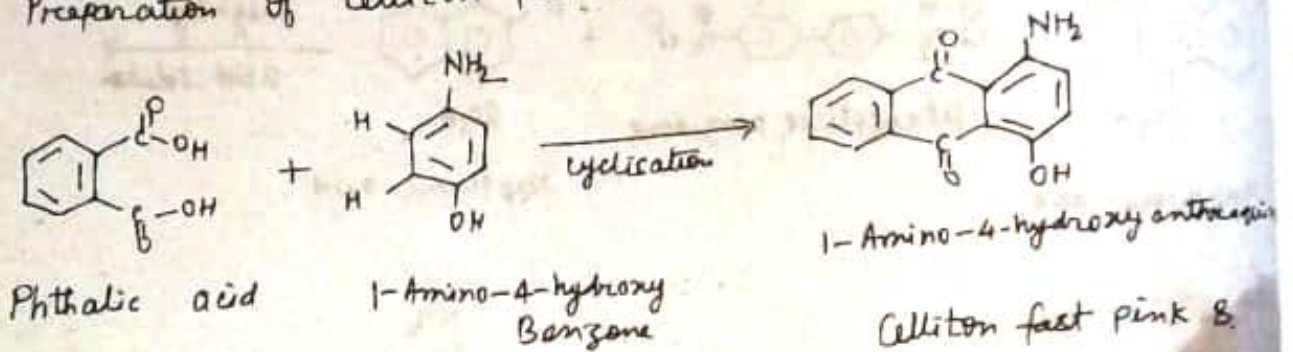 Preparation of
NH2
O
C-OH
C-OH
O
+
H
H
NH2
OH
cyclisation
O
C
C
O
NH2
OH
Phthalic acid
1-Amino-4-hydroxy
Benzene
1-Amino-4-hydroxy
Celliton fast pink B.